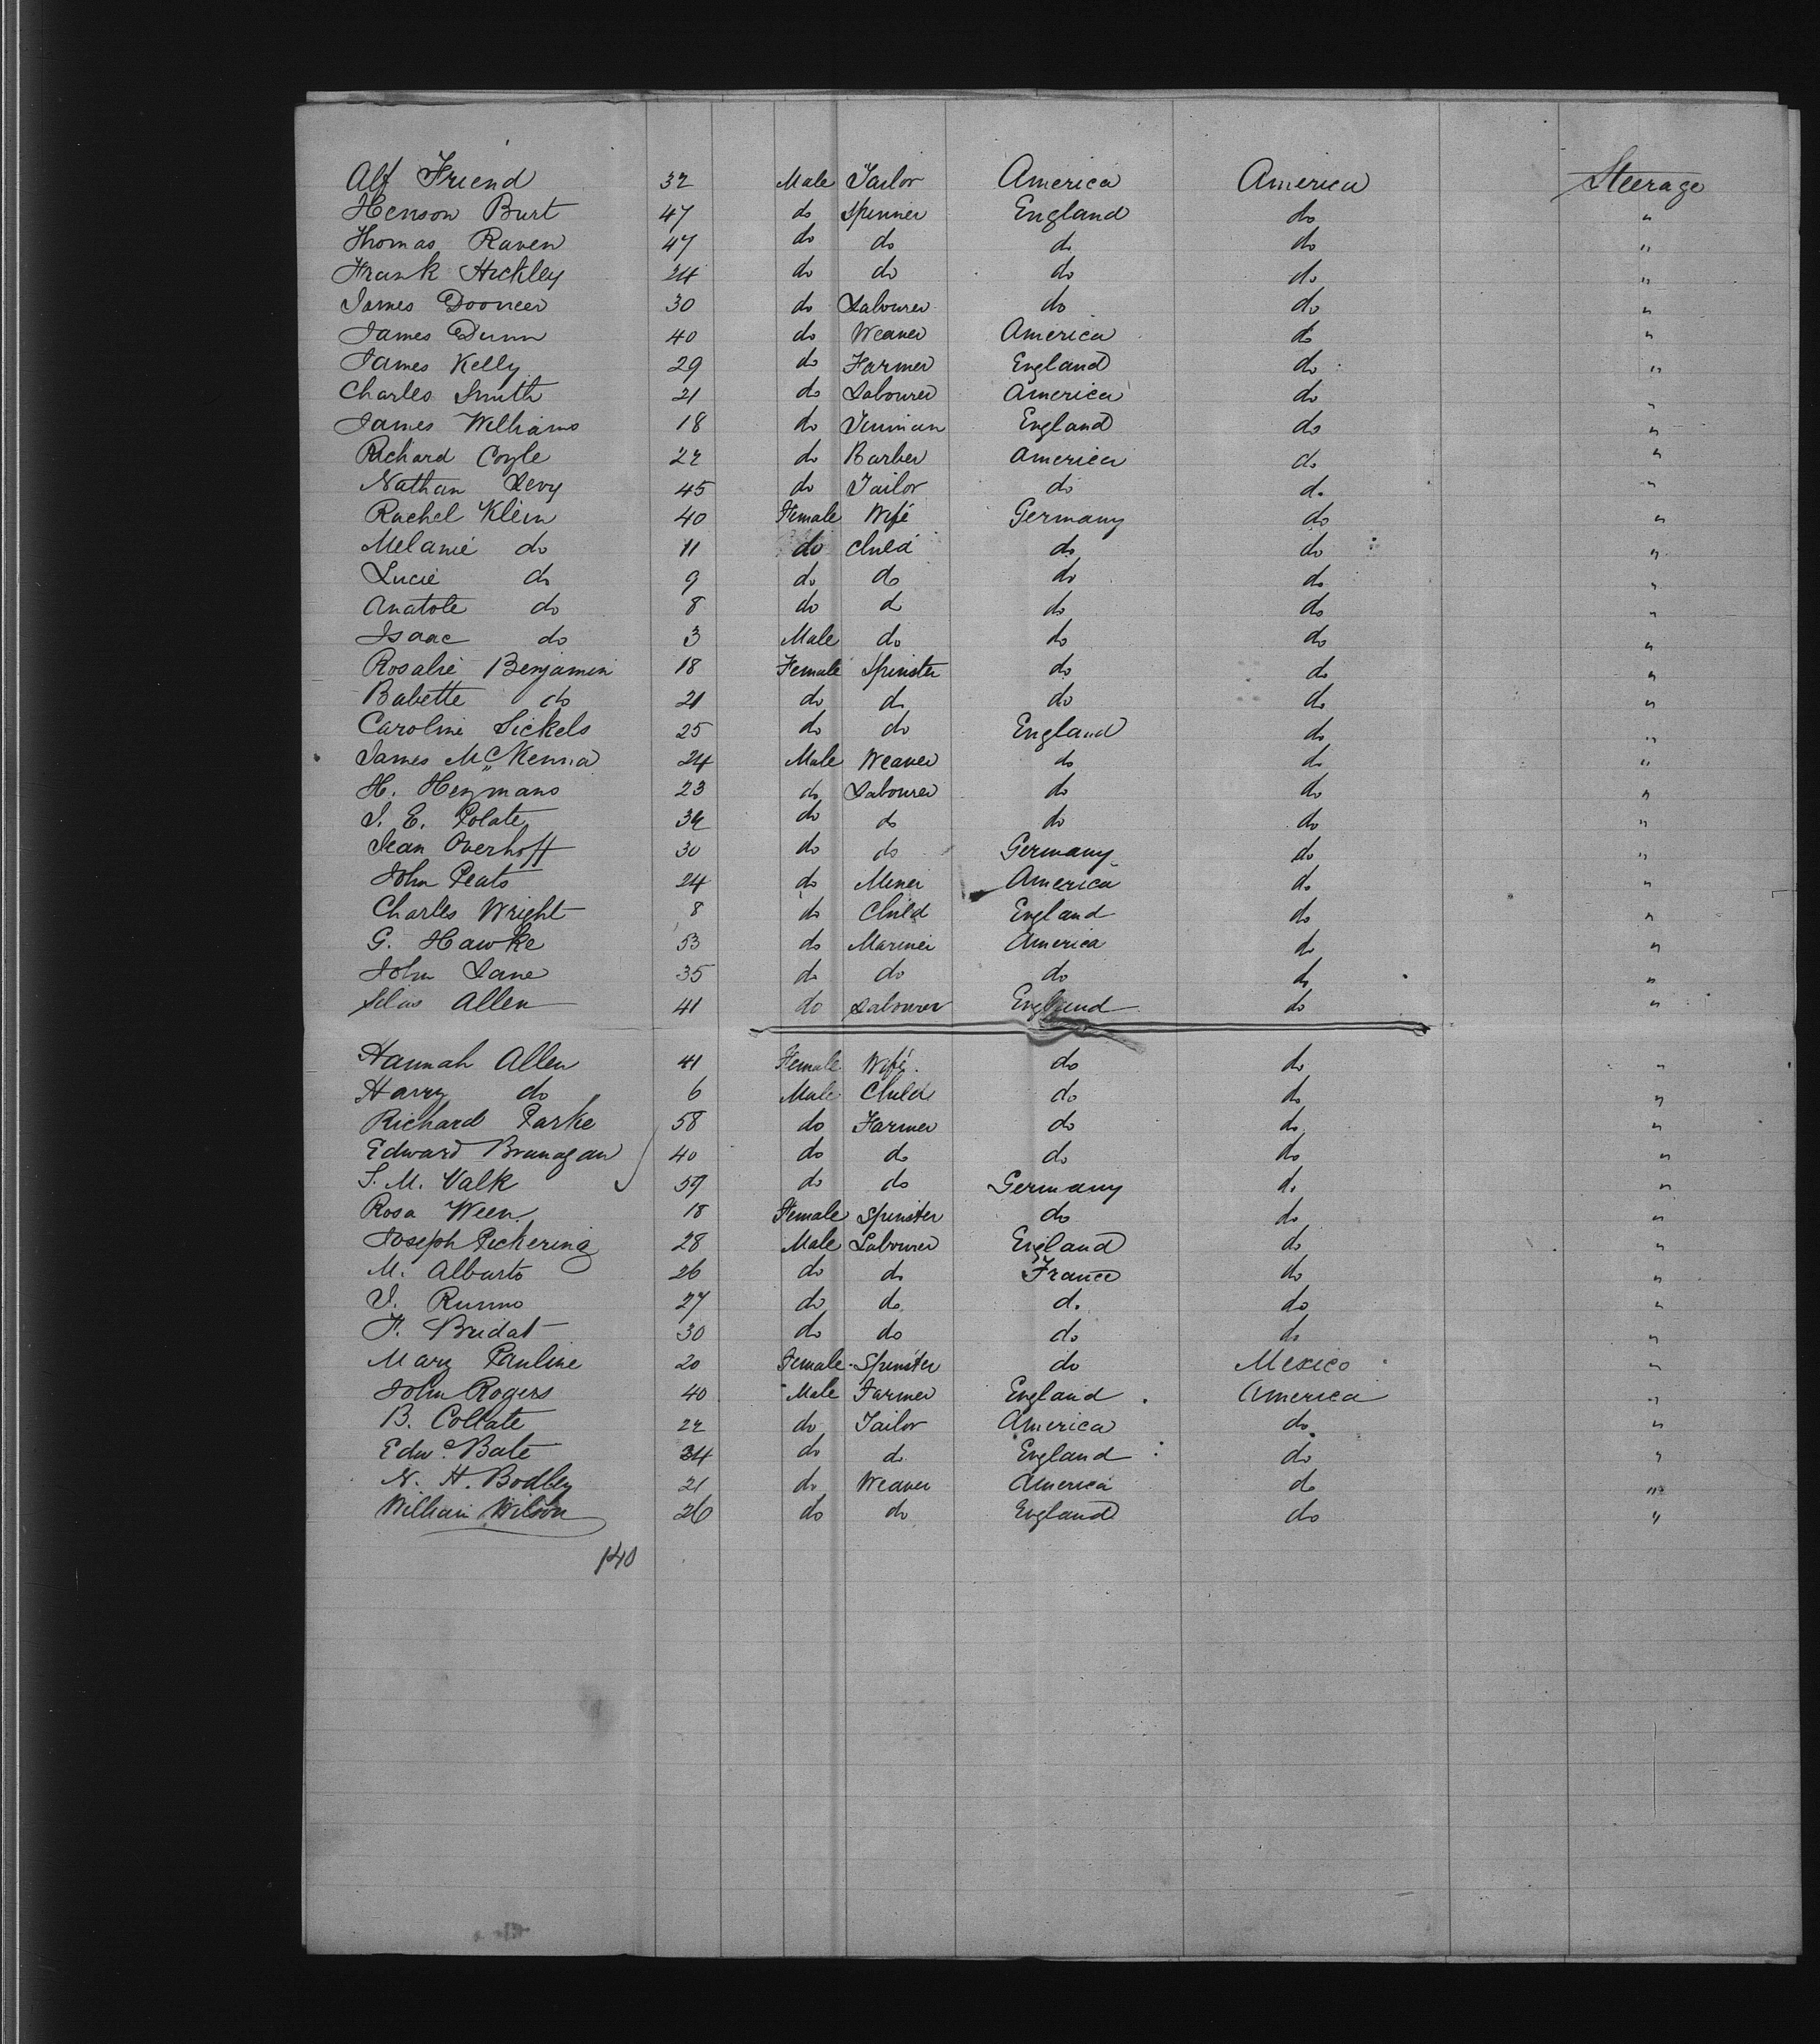 Alf Friend 32 Male Tailor America America Steerage
Henson Burt 47 do Spinner England do "
Thomas Raven 47 do do do do "
Frank Hickley 24 do do do do "
James Dooncer 30 do Labourer do do "
James Dunn 40 do Weaver America do "
James Kelly 29 do Farmer England do "
Charles Smith 21 do Labourer America do "
James Williams 18 do England do "
Richard Coyle 22 do Barber America do "
Nathan Levy 45 do Tailor do do "
Rachel Klein 40 Female Wife Germany do "
Melanie do 11 do Child do do "
Lucie do 9 do do do do "
Anatole do 8 do do do do "
Isaac do 3 Male do do do "
Rosalie Benjamin 18 Female Spinster do do "
Babette do 21 do do do do "
Caroline Sickels 25 do do England do "
James McKenna 24 Male Weaver do do "
H. Heymans 23 do Labourer do do "
J. E. Polate do do do do "
Jean Overhoff 30 do do Germany do "
John Peats 24 do Miner America do "
Charles Wright 8 do Child England do "
G. Hawke 53 do Mariner America do "
John Lane 35 do do do do "
Silas Allen 41 do Labourer England do "
Hannah Allen 41 Female Wife do do "
Harry do 6 Male Child do do "
Richard Parke 58 do Farmer do do "
Edward Branagan 40 do do do do "
S. M. Valk 59 do do Germany do "
Rosa Ween 18 Female Spinster do do "
Joseph Pickering 28 Male Labourer England do "
M. Albarto 26 do do France do "
J. Runno 27 do do do do "
F. Bridat 30 do do do do "
Mary Pauline 20 Female Spinster do Mexico "
John Rogers 40 Male Farmer England America "
B. Collate 22 do Tailor America do "
Edwd Bate 34 do do England do "
N. H. Bodley 21 do Weaver America do "
William Wilson 26 do do England do "
140